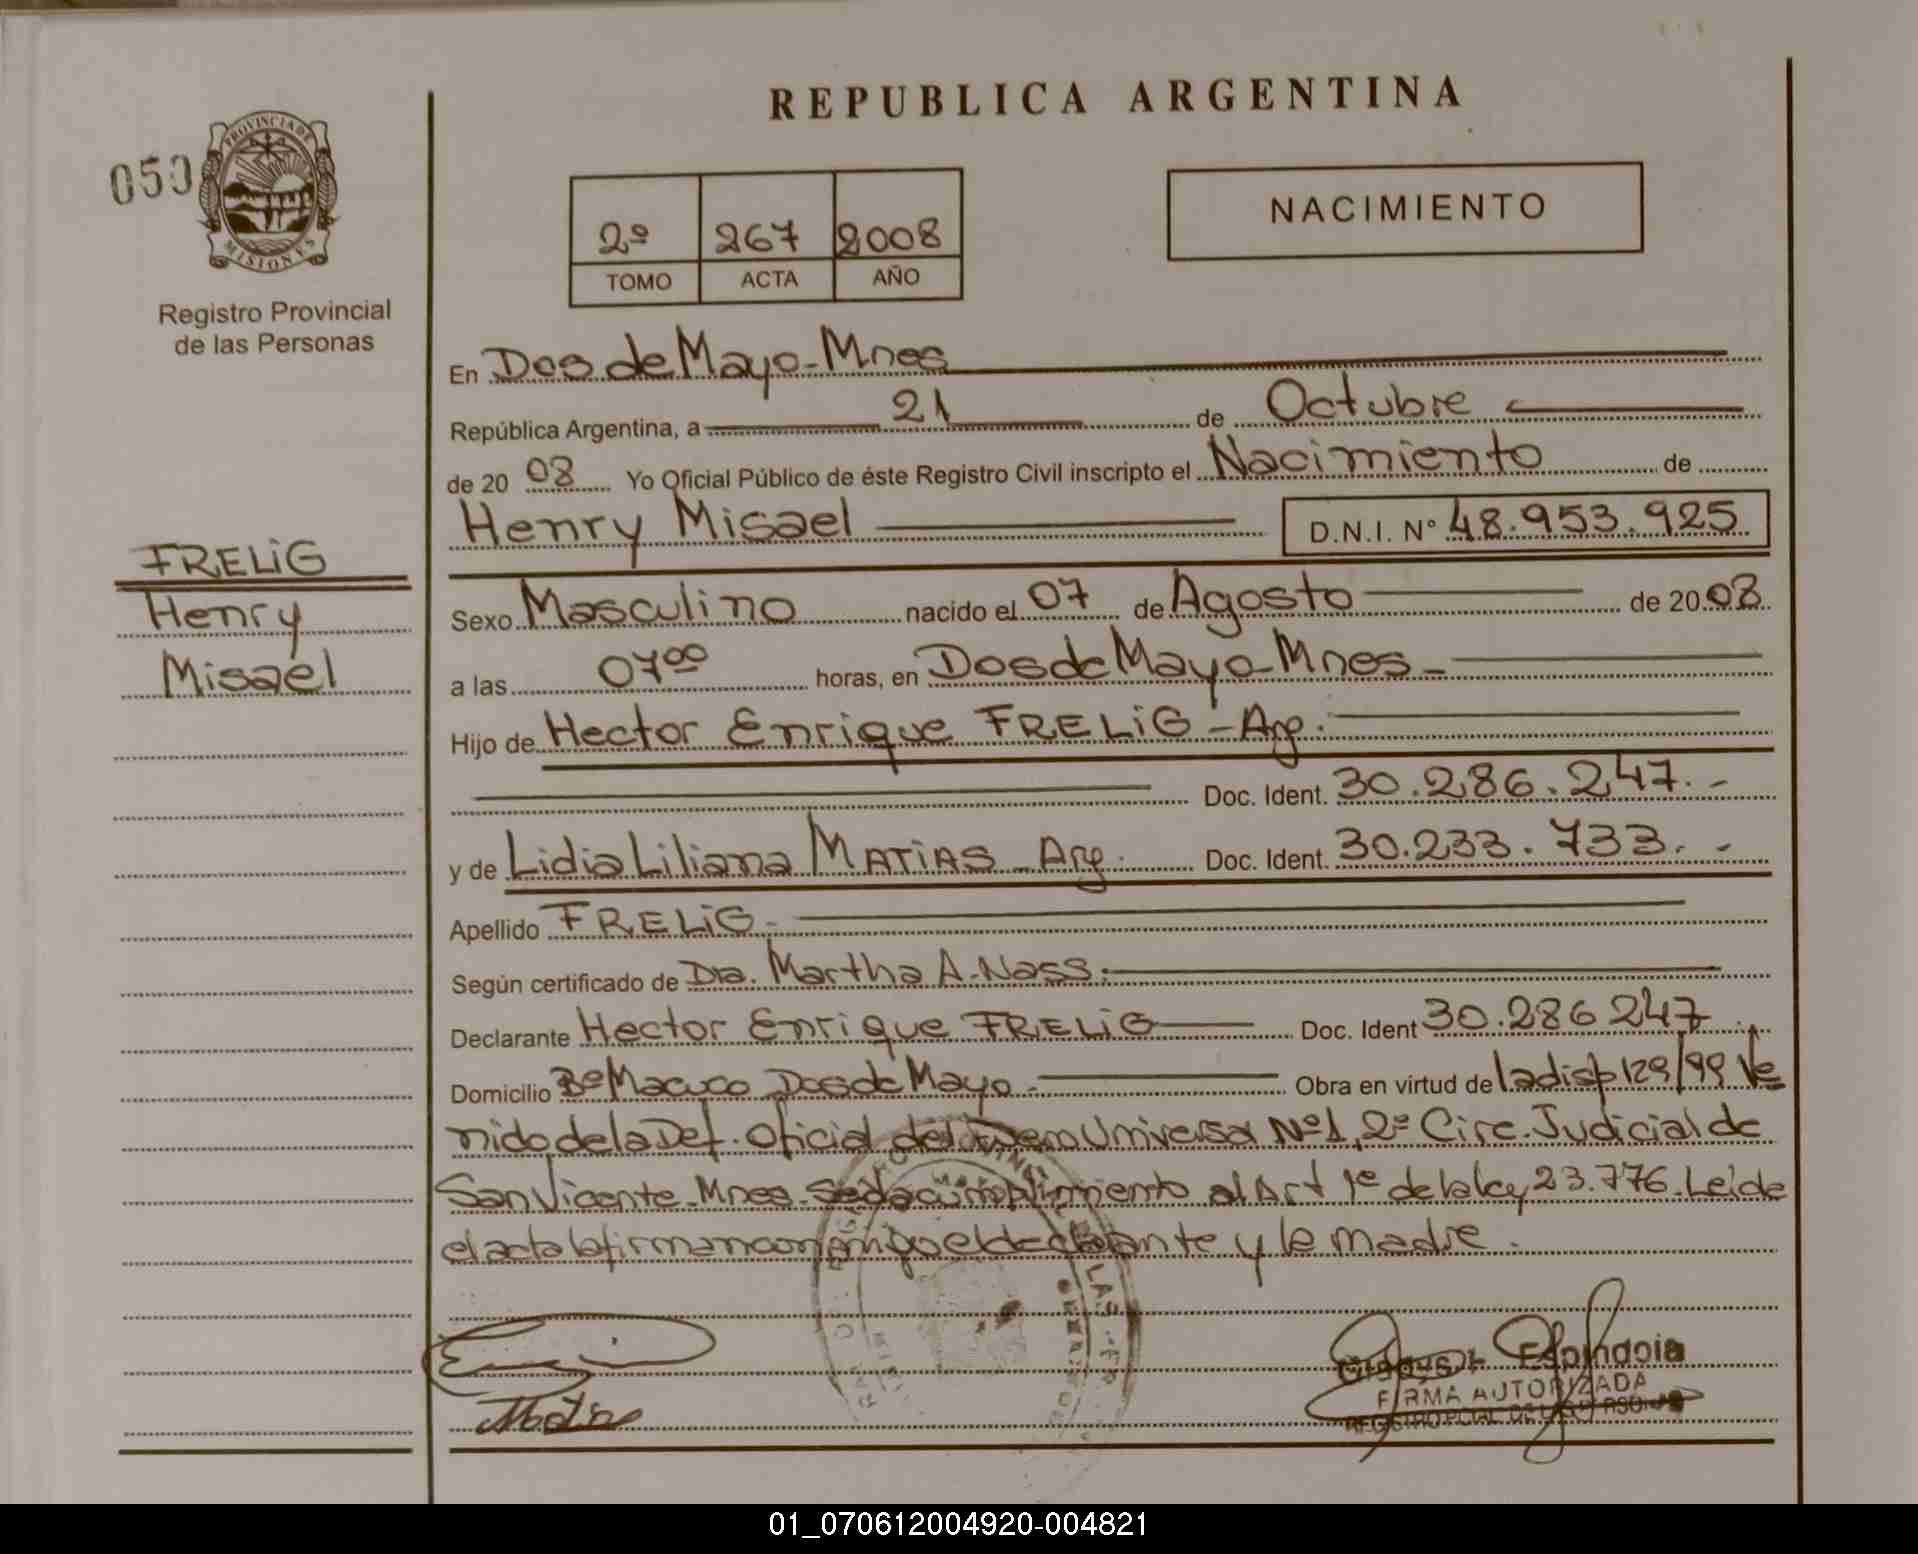 REPUBLICA ARGENTINA
050
PROVINCIA DE
MISIONES
Registro Provincial
de las Personas
2º 267 2008
TOMO ACTA AÑO
NACIMIENTO
En Dos de Mayo - Mnes
República Argentina, a 21 de Octubre
de 20 08 Yo Oficial Público de éste Registro Civil inscripto el Nacimiento de
Henry Misael D.N.I. Nº 48.953.925
FRELiG
Henry
Misael
Sexo Masculino nacido el 07 de Agosto de 20 08
a las 07⁰⁰ horas, en Dos de Mayo - Mnes -
Hijo de Hector Enrique FRELiG - Arg.
Doc. Ident. 30.286.247. -
y de Lidia Liliana MATiAS - Arg. Doc. Ident. 30.233.733. -
Apellido FRELiG -
Según certificado de Dra. Martha A. Nass.
Declarante Hector Enrique FRELiG Doc. Ident 30.286 247
Domicilio Bº Macuco Dos de Mayo - Obra en virtud de la disp 129/99 Ve
nido de la Def. Oficial del Fuero Universal Nº 1, 2º Circ. Judicial de
San Vicente - Mnes. Se da cumplimiento al Art 1º de la ley 23.776. Leída
el acta la firman conmigo el declarante y la madre.
Matias
Espindola
FIRMA AUTORIZADA
REGISTRO PCIAL DE LAS PERSONAS
01_070612004920-004821